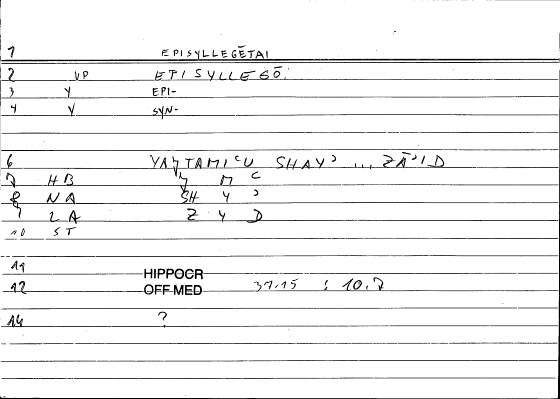 1 EPISYLLEGĒTAI
2 VP EPISYLLEGŌ.
3 Y EPI-
4 Y SYN-
6 YAǦTAMIʿU SHAYʾ ... ZĀʾID
7 HB Ǧ M C
8 NA SH Y ʾ
9 ZA Z Y D
10 ST
11
12 HIPPOCR OFF-MED 37.15 : 10.7
14 ?